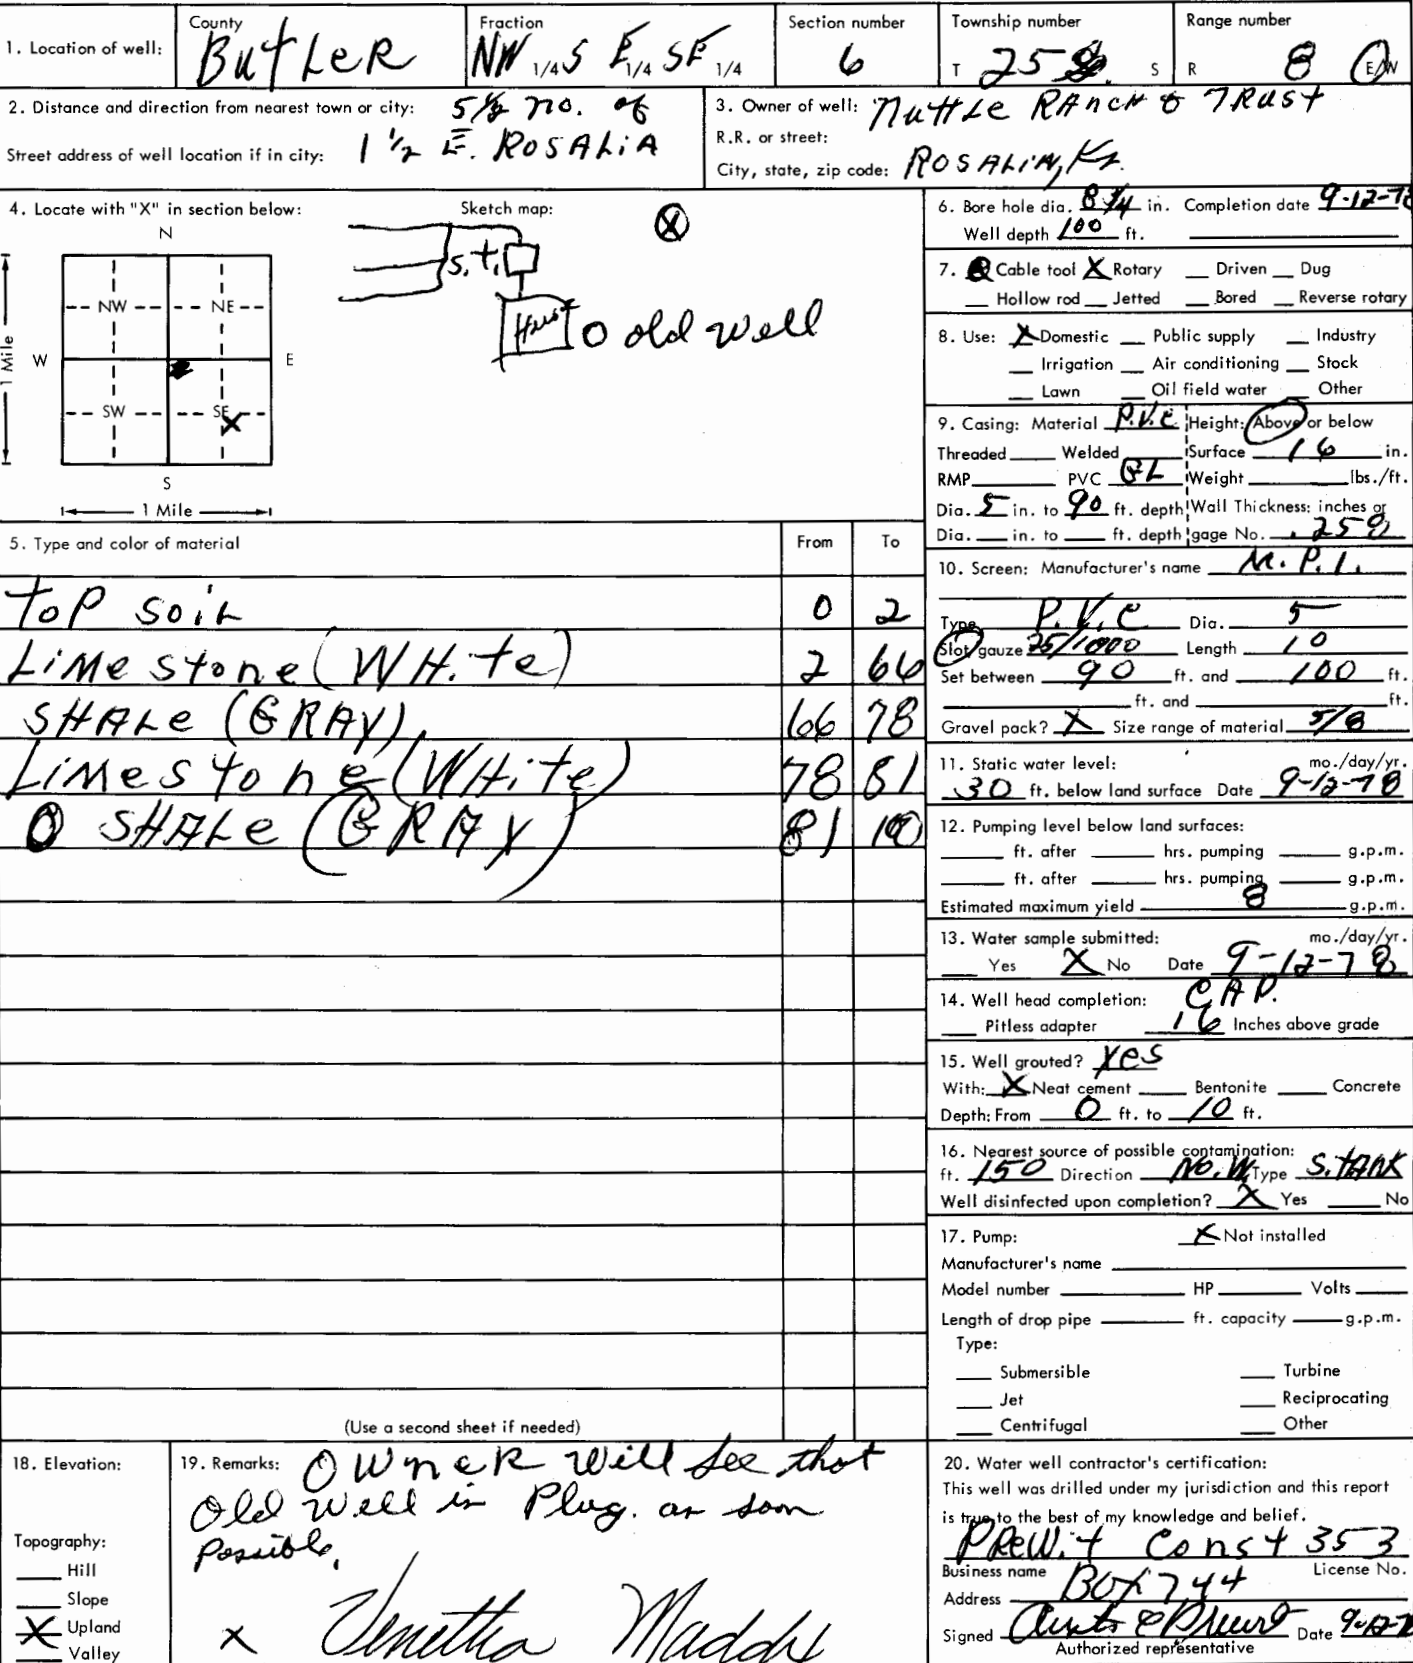 1. Location of well: County Butler Fraction NW 1/4 S E 1/4 SE 1/4 Section number 6 Township number T 25 S Range number R 8 E/W
2. Distance and direction from nearest town or city: 5 1/2 no. of
1 1/2 E. ROSALIA
Street address of well location if in city:
3. Owner of well: Nuttle RANCH & TRUST
R.R. or street:
City, state, zip code: ROSALIA, Ks.
4. Locate with "X" in section below:
N
NW NE
W E
SW SE
S
1 Mile
1 Mile
X
Sketch map:
X
s.t.
old well
5. Type and color of material From To
Top soil 0 2
Limestone (White) 2 66
SHALE (GRAY) 66 78
Limestone (White) 78 81
SHALE (GRAY) 81 100
(Use a second sheet if needed)
6. Bore hole dia. 8 3/4 in. Completion date 9-12-78
Well depth 100 ft.
7. Cable tool X Rotary Driven Dug
Hollow rod Jetted Bored Reverse rotary
8. Use: X Domestic Public supply Industry
Irrigation Air conditioning Stock
Lawn Oil field water Other
9. Casing: Material P.V.C. Height: Above or below
Threaded Welded Surface 16 in.
RMP PVC GL Weight lbs./ft.
Dia. 5 in. to 90 ft. depth Wall Thickness: inches or
Dia. in. to ft. depth gage No. .258
10. Screen: Manufacturer's name M.P.I.
Type P.V.C Dia. 5
Slot gauze 25/1000 Length 10
Set between 90 ft. and 100 ft.
ft. and ft.
Gravel pack? X Size range of material 5/8
11. Static water level: mo./day/yr.
30 ft. below land surface Date 9-12-78
12. Pumping level below land surfaces:
ft. after hrs. pumping g.p.m.
ft. after hrs. pumping g.p.m.
Estimated maximum yield 8 g.p.m.
13. Water sample submitted: mo./day/yr.
Yes X No Date 9-12-78
14. Well head completion: CAP.
Pitless adapter 16 Inches above grade
15. Well grouted? Yes
With: X Neat cement Bentonite Concrete
Depth: From 0 ft. to 10 ft.
16. Nearest source of possible contamination:
ft. 150 Direction No.W. Type S. TANK
Well disinfected upon completion? X Yes No
17. Pump: X Not installed
Manufacturer's name
Model number HP Volts
Length of drop pipe ft. capacity g.p.m.
Type:
Submersible Turbine
Jet Reciprocating
Centrifugal Other
18. Elevation:
Topography:
Hill
Slope
X Upland
Valley
19. Remarks: Owner will see that
old well is Plug. as soon
Possible.
X Venetta
20. Water well contractor's certification:
This well was drilled under my jurisdiction and this report
is true to the best of my knowledge and belief.
Prewit Const 353
Business name License No.
Address Box 744
Signed Date 9-12-7
Authorized representative